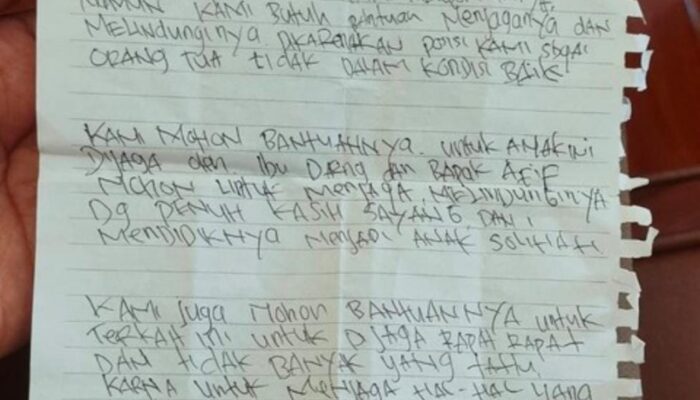 NAMUN KAMI Butuh Bantuan Menjaganya DAN
MELINDUNGINYA DKARENAKAN POSISI KAMI Sbgai
ORANG TUA tidak DALAM KONDISI BAIK
KAMI MOHON BANTUAHNYA. untuk ANAK INI
DIJAGA dan Ibu Dareng dan BAPAK
MOHON UNTUK MENJAGA, MELINDUNGINYA
Dg PENUH KASIH SAYANG DAN
MENDIDIKNYA MENJADI ANAK SOLIHAH.
KAMI Juga MOHON BANTUANNYA untuk
TERKAIT INI untuk DIJAGA RAPAT RAPAT
DAN tidAK BANYAK YANG TAHU
KARNA UNTUK MENJAGA HAL-HAL YANG